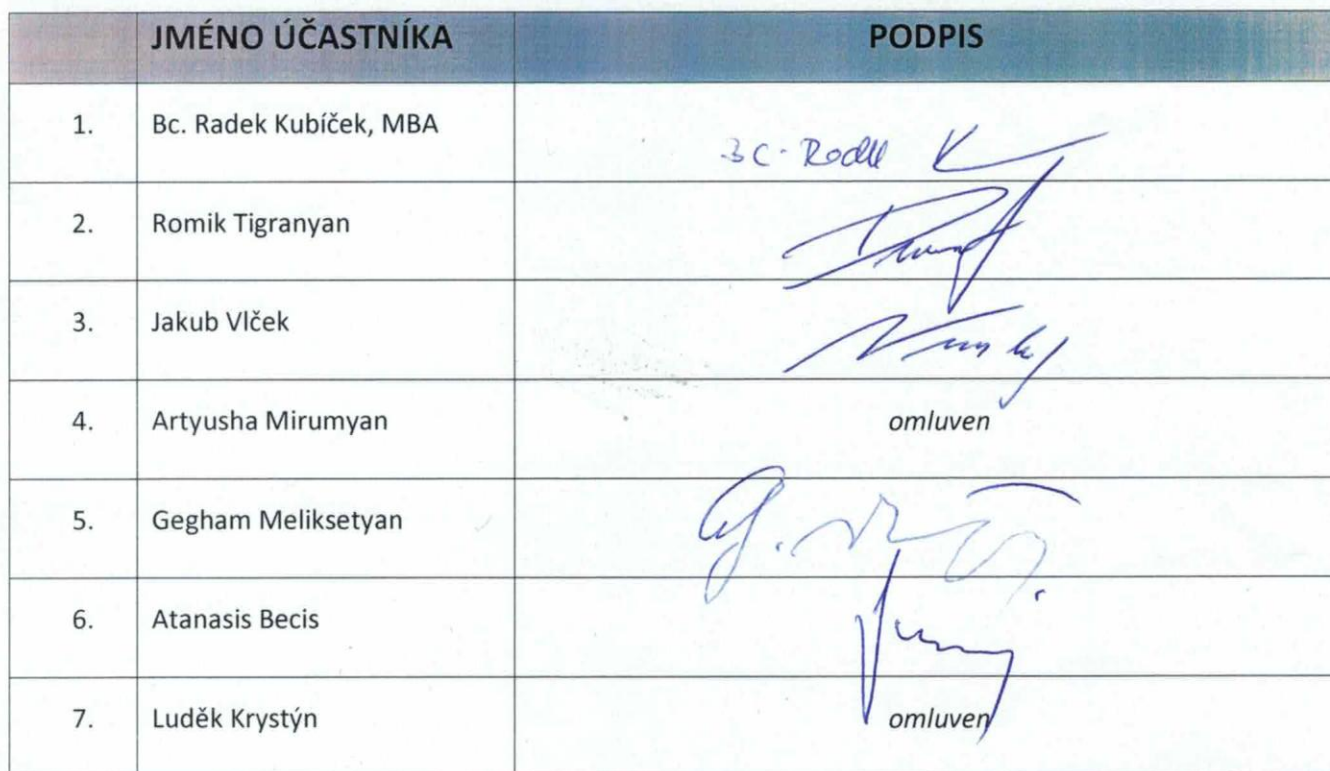 JMÉNO ÚČASTNÍKA PODPIS
1. Bc. Radek Kubíček, MBA
2. Romik Tigranyan
3. Jakub Vlček
4. Artyusha Mirumyan omluven
5. Gegham Meliksetyan
6. Atanasis Becis
7. Luděk Krystýn omluven